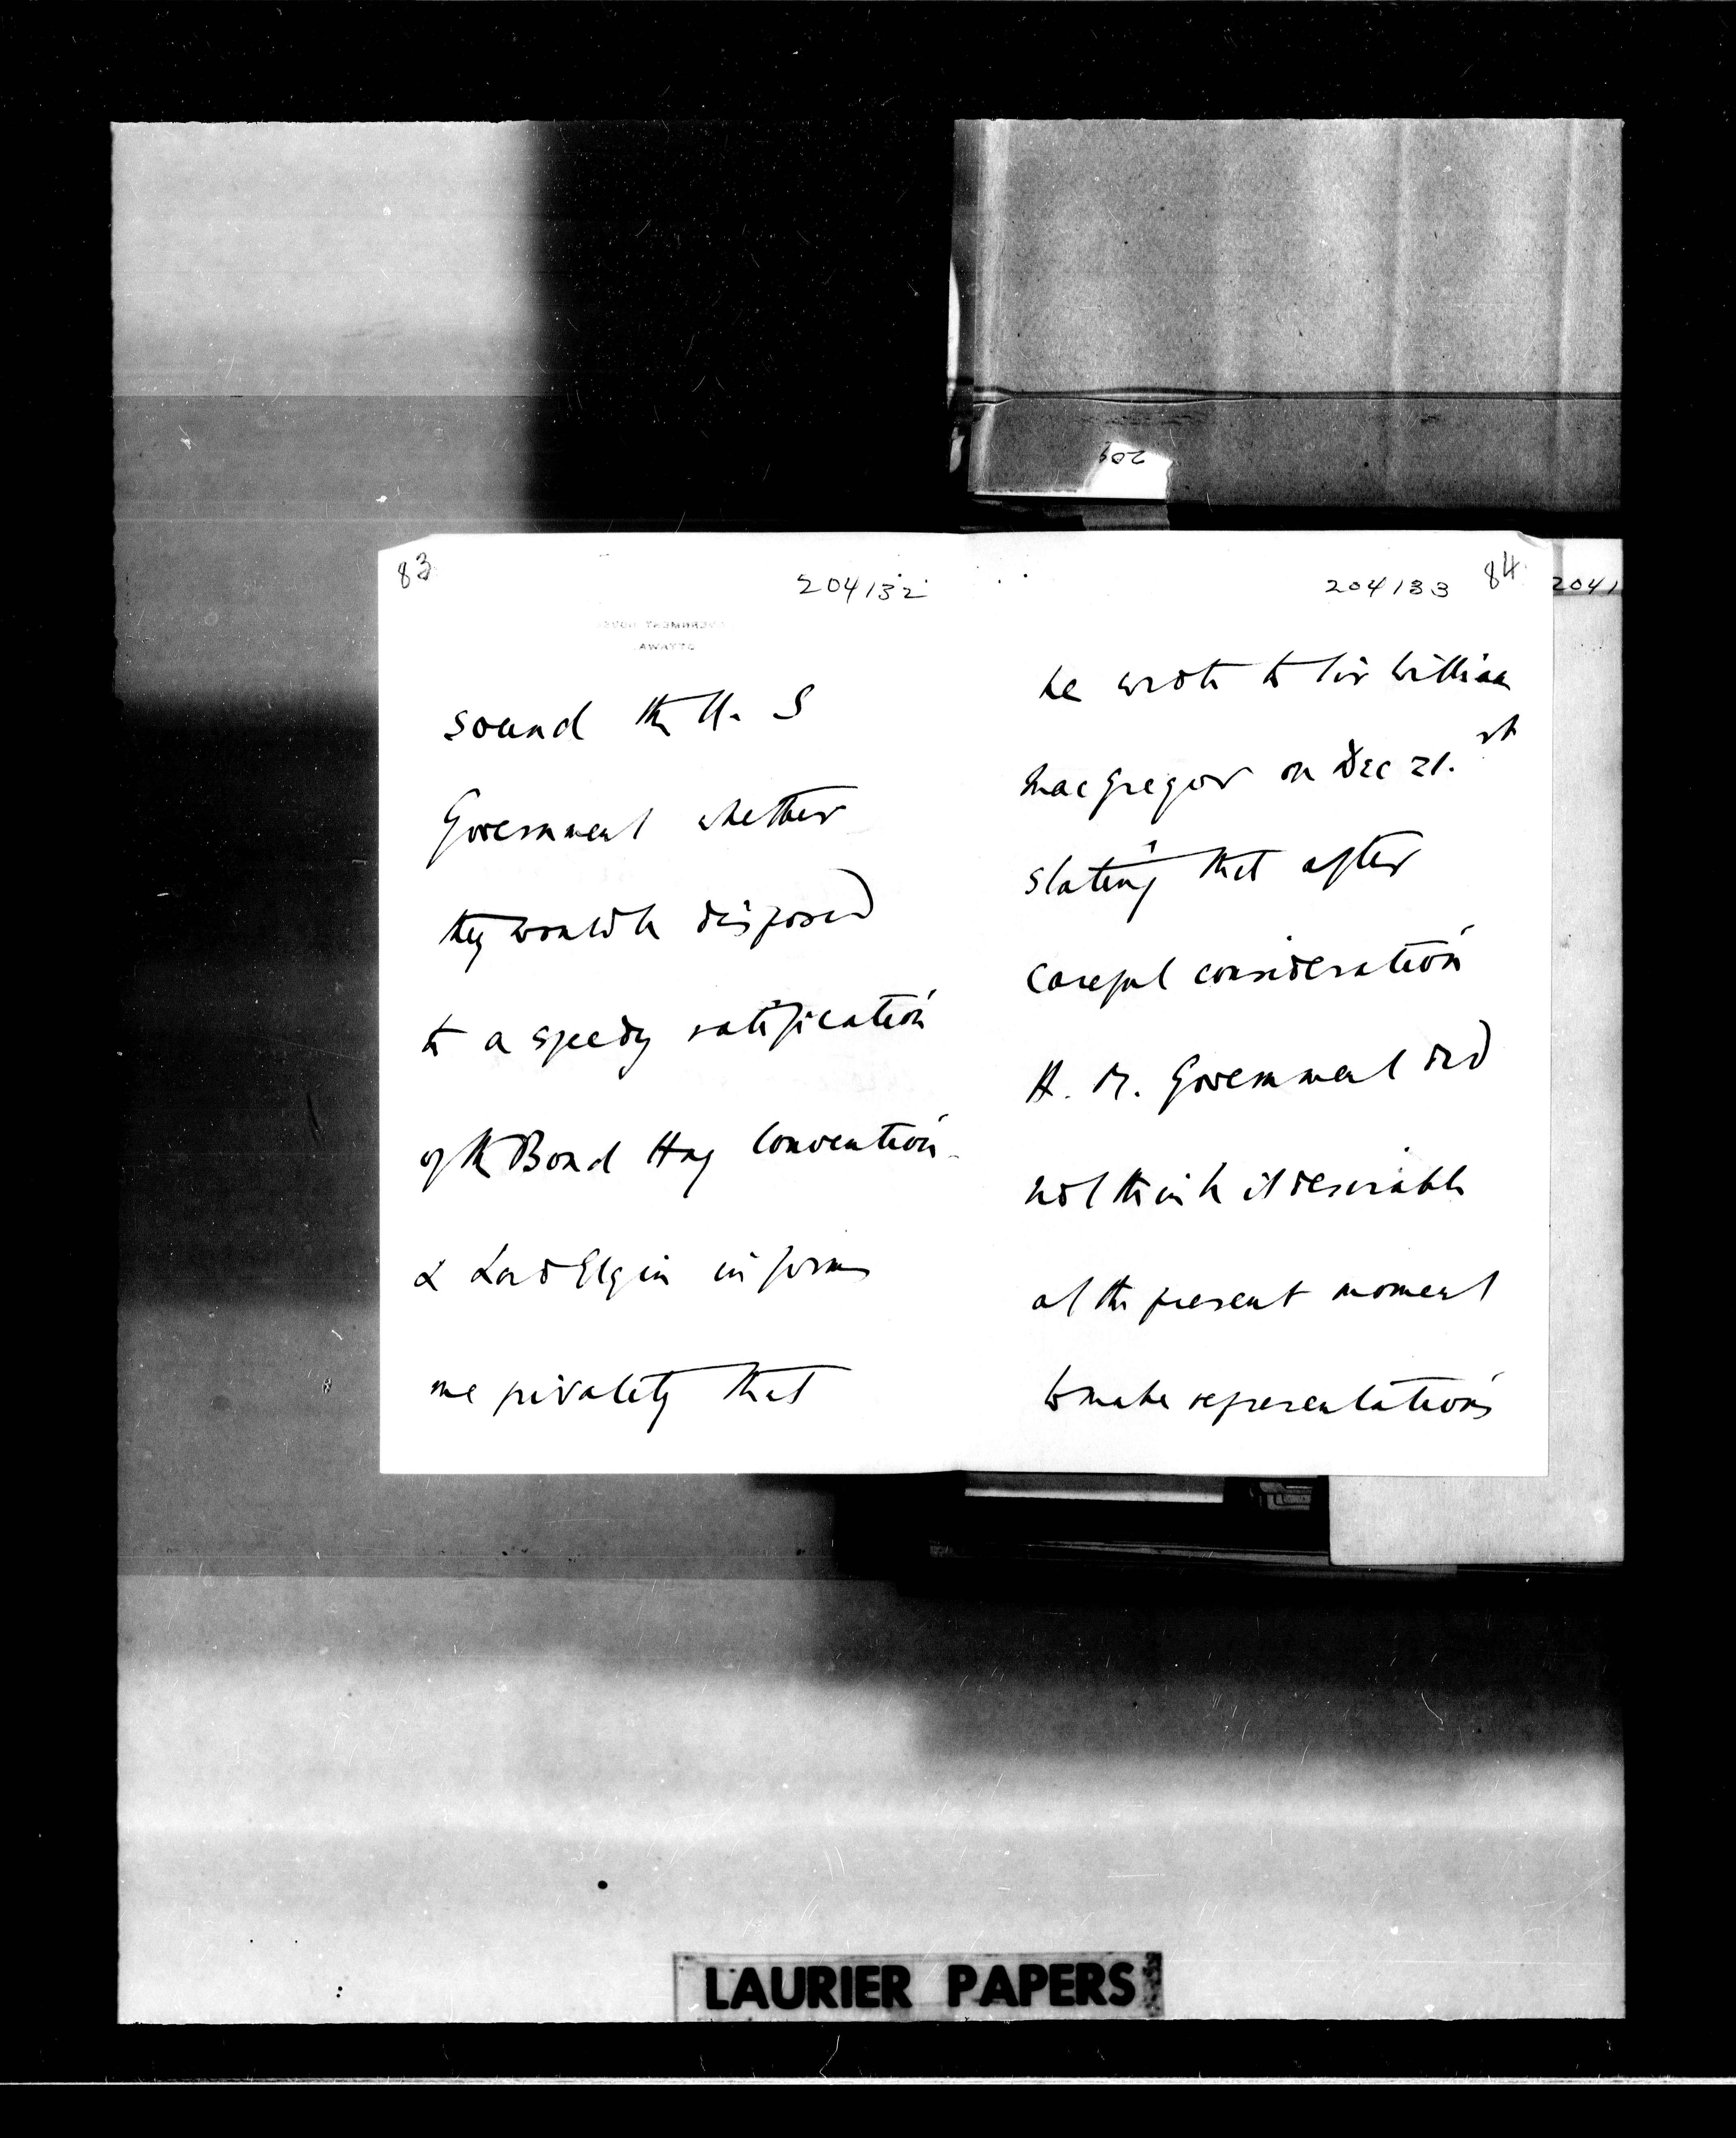 209
83
204132
GOVERNMENT HOUSE
OTTAWA.
sound the U. S
Government whether
they would be disposed
to a speedy ratification
of the Bond Hay Convention
& Lord Elgin informs
me privately that
204133
84
he wrote to Sir William
MacGregor on Dec 21.st
stating that after
careful consideration
H. M. Government did
not think it desirable
at the present moment
to make representations
2041
LAURIER PAPERS